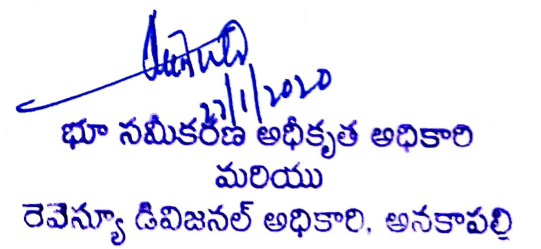 27/1/2020
భూ సమీకరణ అధీకృత అధికారి
మరియు
రెవెన్యూ డివిజనల్ అధికారి, అనకాపల్లి